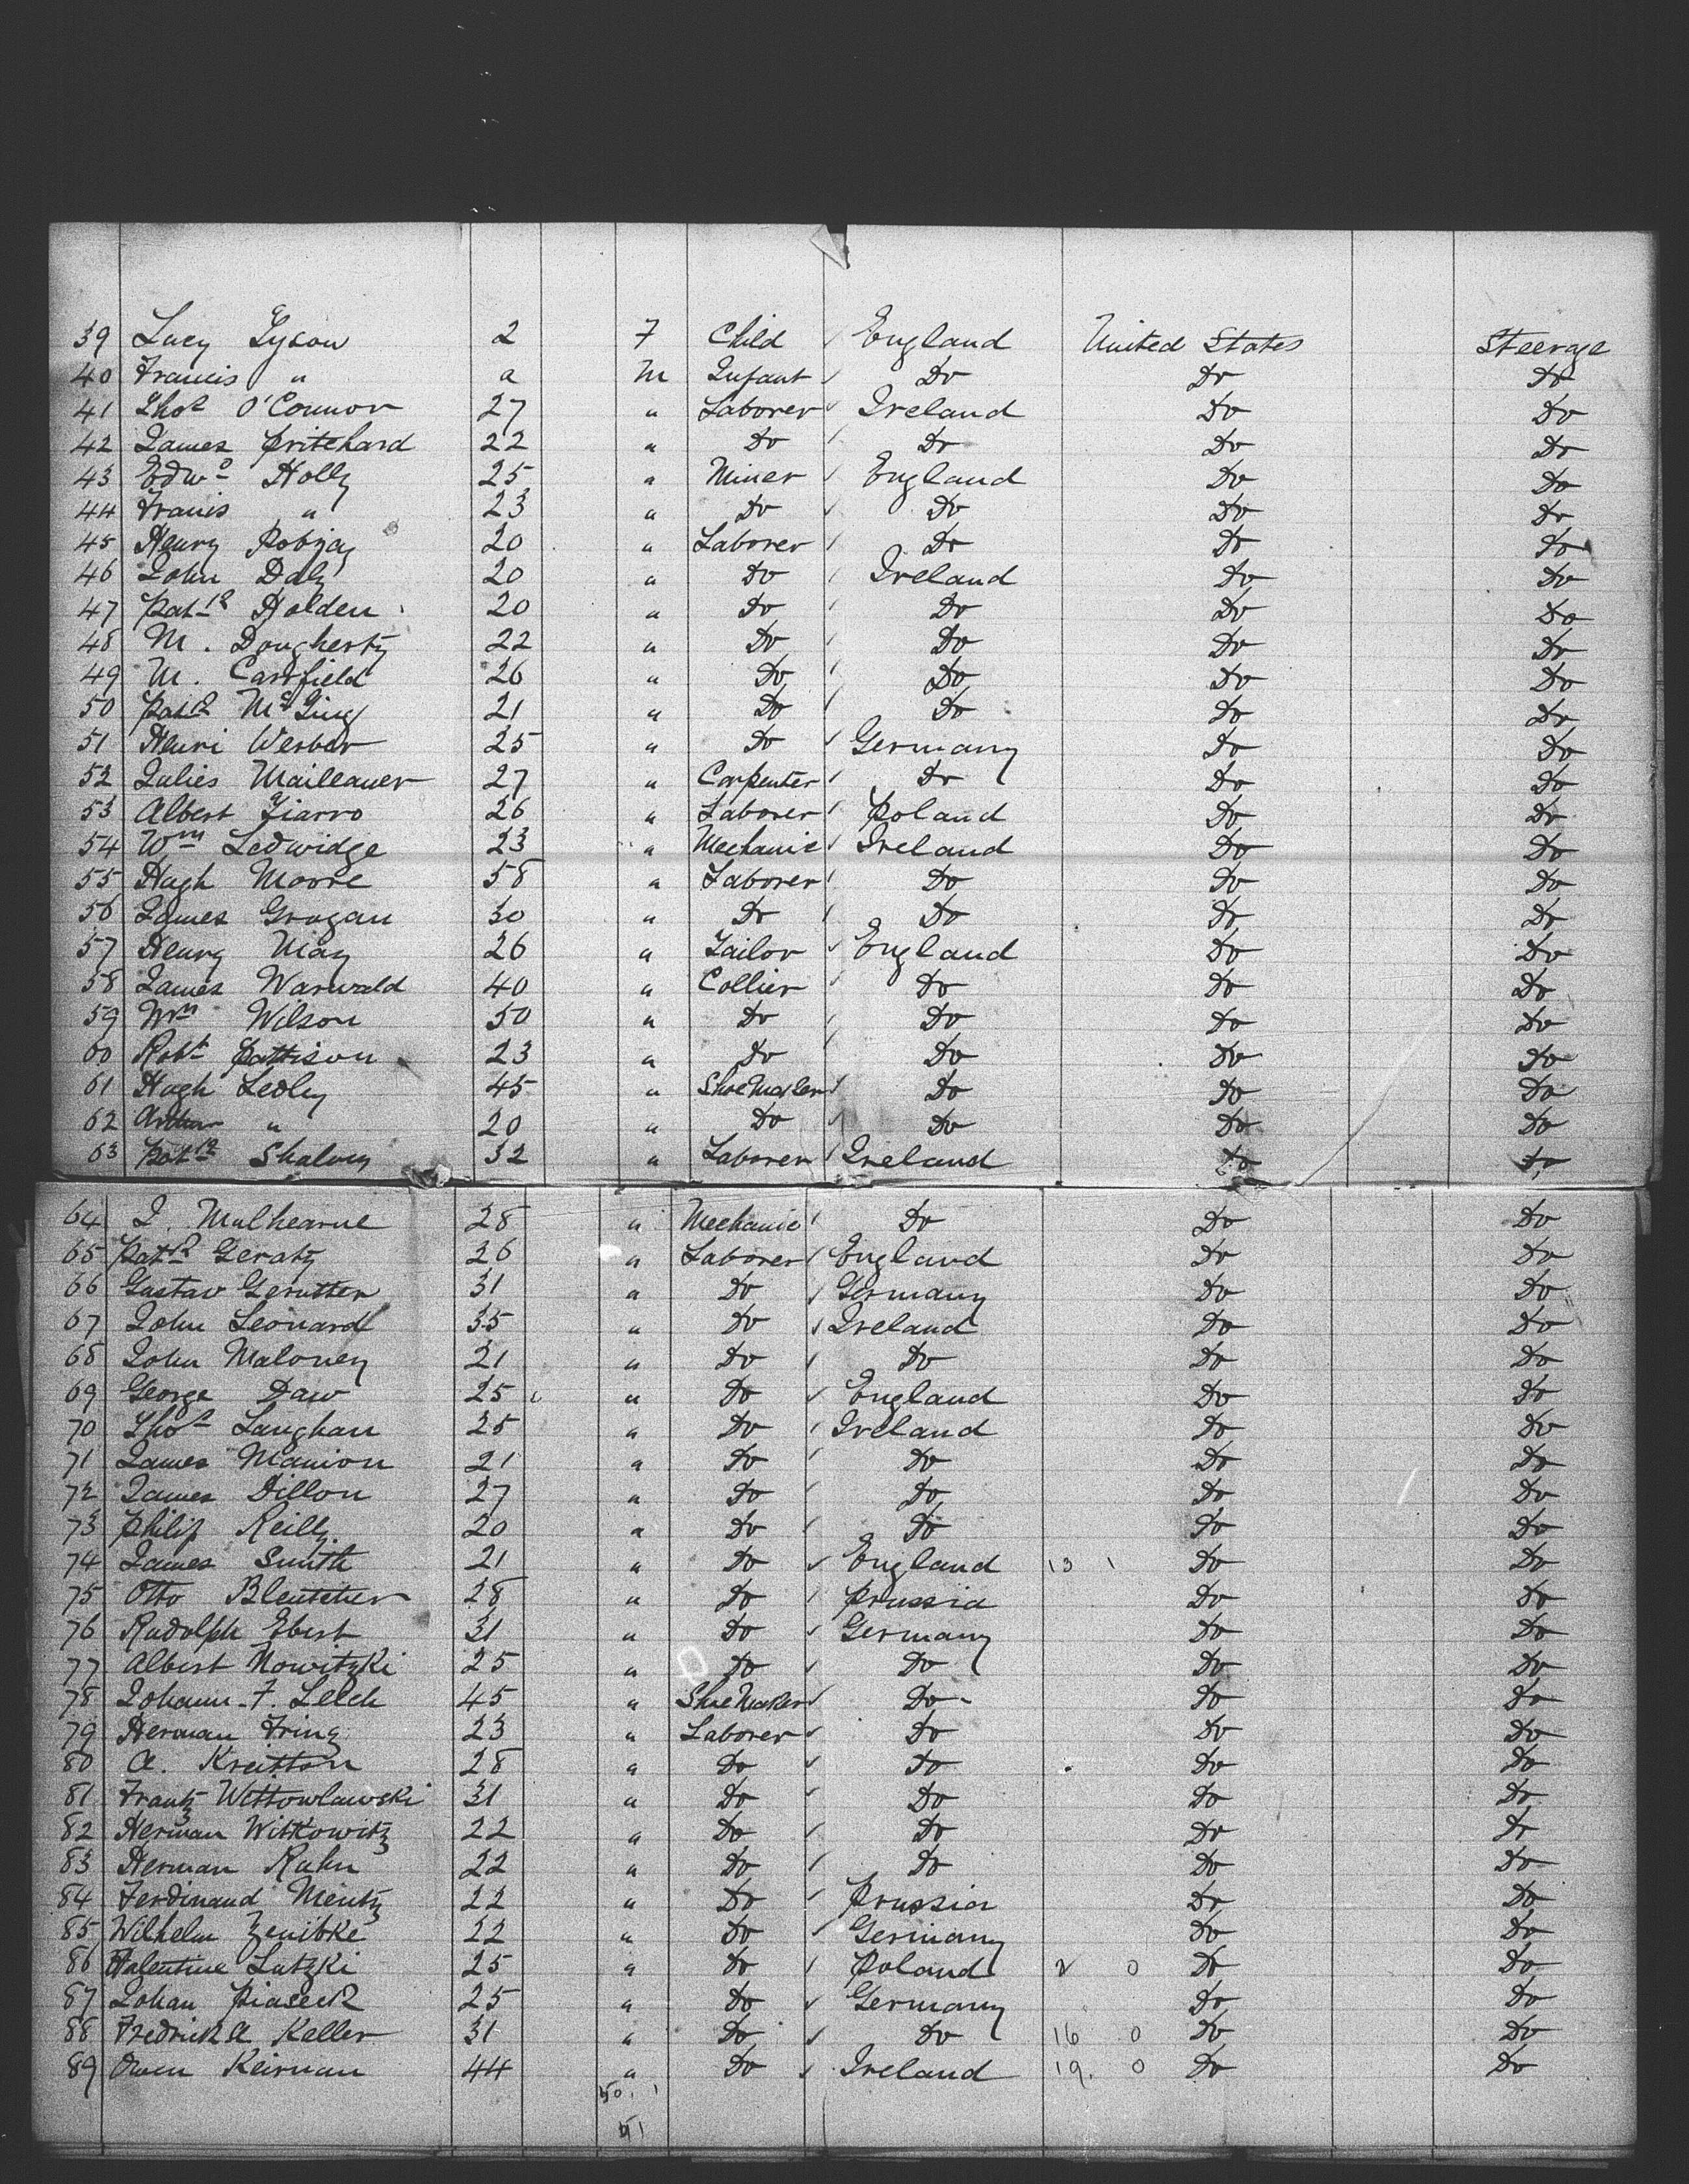 39 Lucy Tyson 2 F Child England United States Steerage
40 Francis " a M Infant Do Do Do
41 Thos O'Connor 27 " Laborer Ireland Do Do
42 James Pritchard 22 " Do Do Do Do
43 Edwd Holly 25 " Miner England Do Do
44 Francis " 23 " Do Do Do Do
45 Henry Robjay 20 " Laborer Do Do Do
46 John Daly 20 " Do Ireland Do Do
47 Patrk Holden 20 " Do Do Do Do
48 M. Dougherty 22 " Do Do Do Do
49 M. Cardfield 26 " Do Do Do Do
50 Patrk McGing 21 " Do Do Do Do
51 Henri Werber 25 " Do Germany Do Do
52 Julies 27 " Carpenter Do Do Do
53 Albert 26 " Laborer Poland Do Do
54 Wm Ledwidge 23 " Mechanic Ireland Do Do
55 Hugh Moore 58 " Laborer Do Do Do
56 James Grogan 30 " Do Do Do Do
57 Henry May 26 " Tailor England Do Do
58 James Warwald 40 " Collier Do Do Do
59 Wm Wilson 50 " Do Do Do Do
60 Robt Pattison 23 " Do Do Do Do
61 Hugh Ledley 45 " Shoe Maker Do Do Do
62 Arthur " 20 " Do Do Do Do
63 Patrk Shalvey 32 " Laborer Ireland Do Do
64 J. Mulhearne 28 " Mechanic Do Do Do
65 Patrk Geraty 26 " Laborer England Do Do
66 Gustav Gerutter 31 " Do Germany Do Do
67 John Leonard 35 " Do Ireland Do Do
68 John Maloney 21 " Do Do Do Do
69 George Daw 25 " Do England Do Do
70 Thos Laughan 25 " Do Ireland Do Do
71 James Manion 21 " Do Do Do Do
72 James Dillon 27 " Do Do Do Do
73 Philip Reilly 20 " Do Do Do Do
74 James Smith 21 " Do England 13 1 Do Do
75 Otto Bleutcher 28 " Do Prussia Do Do
76 Rudolph Ebert 31 " Do Germany Do Do
77 Albert Nowitzki 25 " Do Do Do Do
78 Johann F. Lelch 45 " Shoe Maker Do Do Do
79 Herman Fring 23 " Laborer Do Do Do
80 A. Kreitton 28 " Do Do Do Do
81 Frantz Wittowlawski 31 " Do Do Do Do
82 Herman Witkowitz 22 " Do Do Do Do
83 Herman Kuhn 22 " Do Do Do Do
84 Ferdinand Mentz 22 " Do Prussia Do Do
85 Wilhelm Zenibke 22 " Do Germany Do Do
86 Valentine Lutzki 25 " Do Poland 2 0 Do Do
87 Johan Piaseck 25 " Do Germany Do Do
88 Fredrick A Keller 31 " Do Do 16 0 Do Do
89 Owen Keirnan 44 " Do Ireland 19. 0 Do Do
50. 1
51